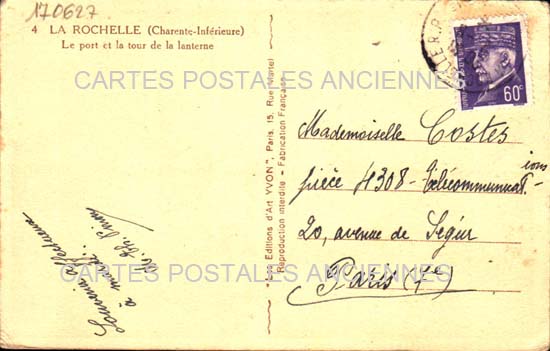 170627
4 LA ROCHELLE (Charente-Inférieure)
Le port et la tour de la lanterne
CARTES POSTALES ANCIENNES
60c
Mademoiselle Costes
pièce 4308 - Télécommunicat-
ions
20, avenue de Ségur
Paris (7e)
"Les Editions d'Art YVON", Paris, 15, Rue Martel
Reproduction interdite - Fabrication Française
CARTES POSTALES ANCIENNES